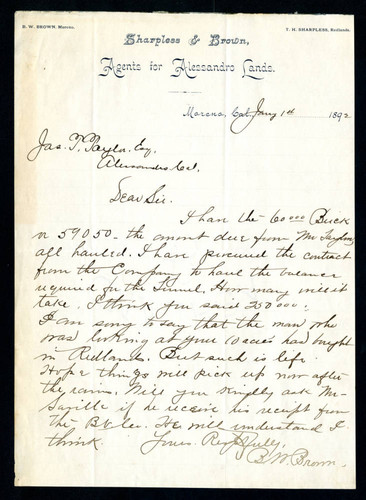 B. W. BROWN, Moreno.
T. H. SHARPLESS, Redlands.
Sharpless & Brown,
Agents for Alessandro Lands.
Moreno, Cal. Jany 1st 1892
Jas. T. Taylor Esq.
Alessandro Cal.
Dear Sir.
I have the 60000 Brick
or 59050 - the amont due from Mr Taylor,
all hauled. I have procured the contract
from the Company to haul the balance
required for the Tunnel. How many will it
take. I think you said 250000.
I am sorry to say that the man who
was looking at your 10 acres had bought
in Redlands. But such is life.
Hope things will pick up now after
the rains. Will you kindly ask Mr
Saville if he receive his receipt from
the B & Co. He will understand I
think. Yours Respfully,
B. W. Brown.